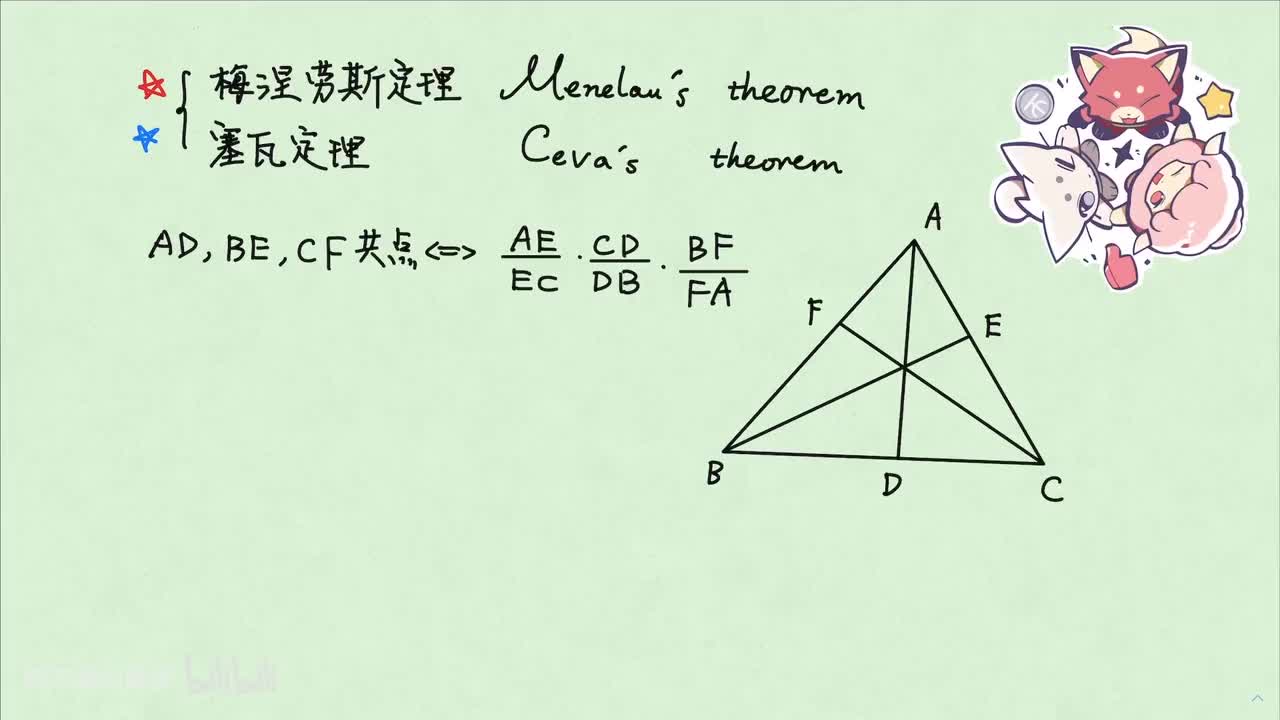 梅涅劳斯定理 Menelau's theorem
塞瓦定理 Ceva's theorem
AD, BE, CF 共点 <=> AE/EC · CD/DB · BF/FA
A
F
E
B
D
C
bilibili